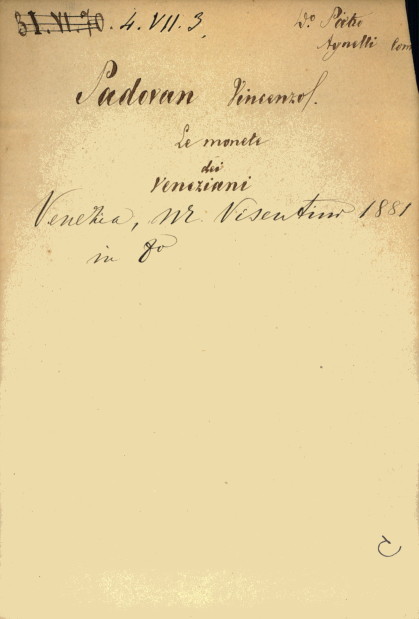 3 I.VI.70. 4.VII.3.
Dº. Patre
Agnelli Com
Padovan Vincenzo f.
Le monete
dei
Veneziani
Venezia, M. Visentini 1881
in 8o